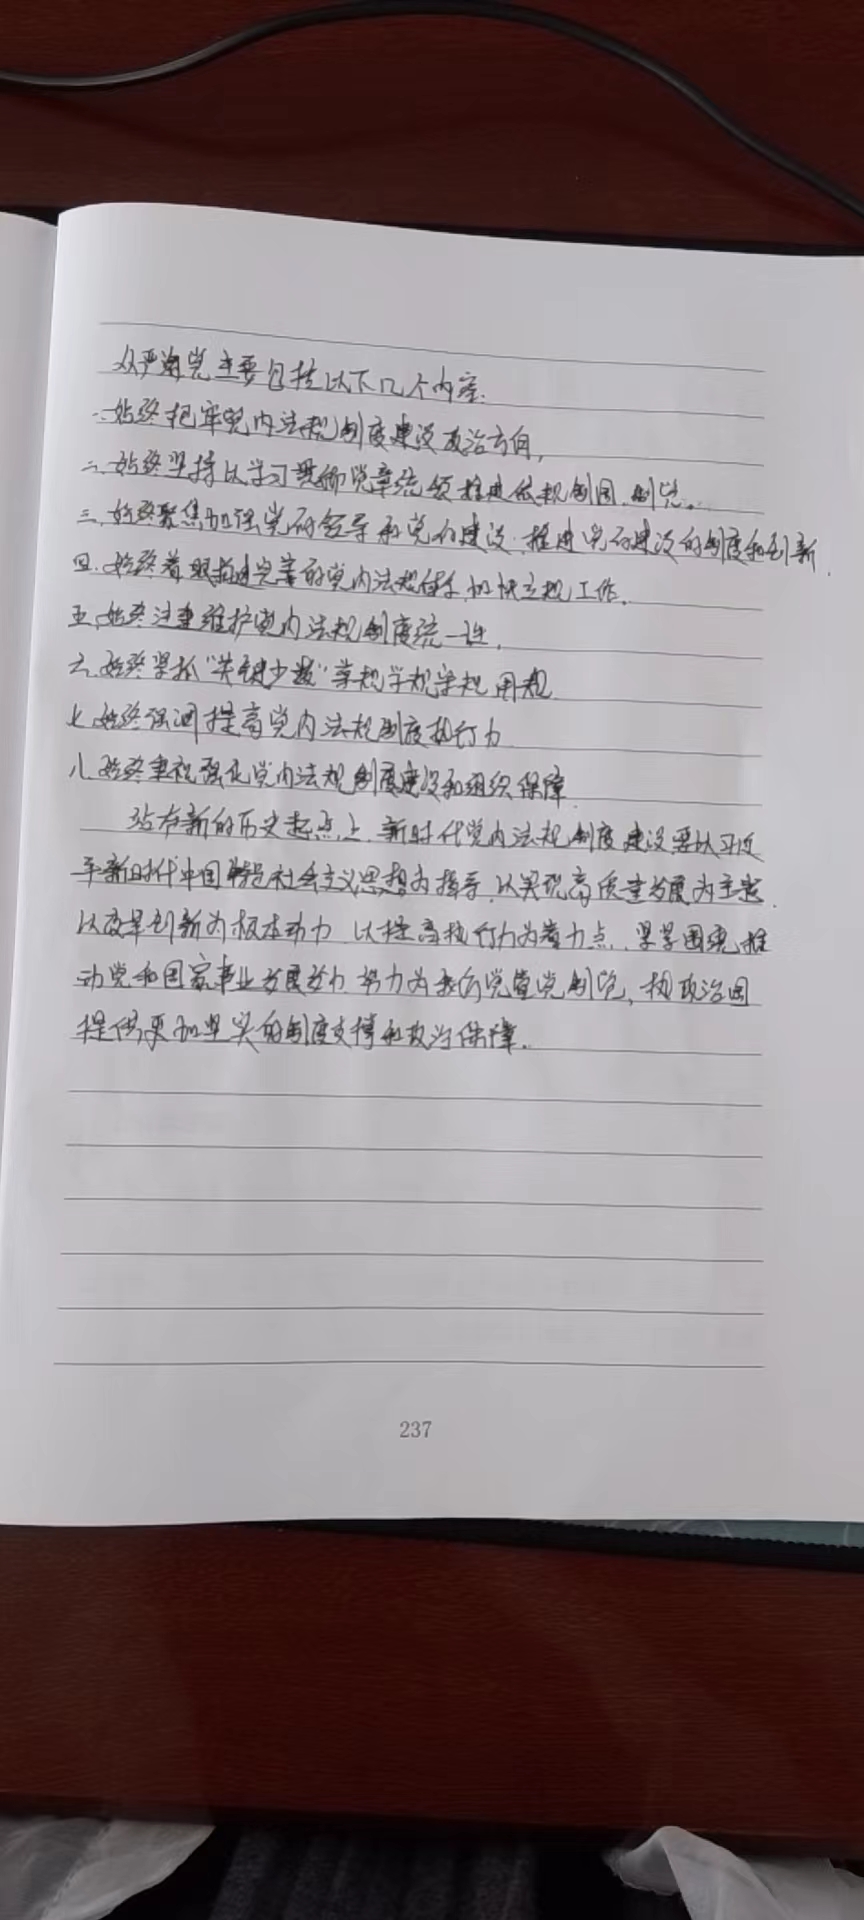 从严治党主要包括以下几个内容.
一.始终把牢党内法规制度建设政治方向,
二.始终坚持以学习贯彻党章统领推进依规制国.制党。
三.始终聚焦加强党的领导和党的建设.推进党的建设的制度和创新.
四.始终着眼推进完善的党内法规体系.加快立规工作.
五.始终注重维护党内法规制度统一性,
六.始终紧抓"关键少数"尊规学规守规用规
七.始终强调提高党内法规制度执行力
八.始终重视强化党内法规制度建设和组织保障.
站在新的历史起点上.新时代党内法规制度建设要以习近
平新时代中国特色社会主义思想为指导.以实现高质量发展为主题.
以改革创新为根本动力 以提高执行力为着力点.紧紧围绕推
动党和国家事业发展 努力为我们党管党制党.执政治国
提供更加坚实的制度支撑和政治保障.
237